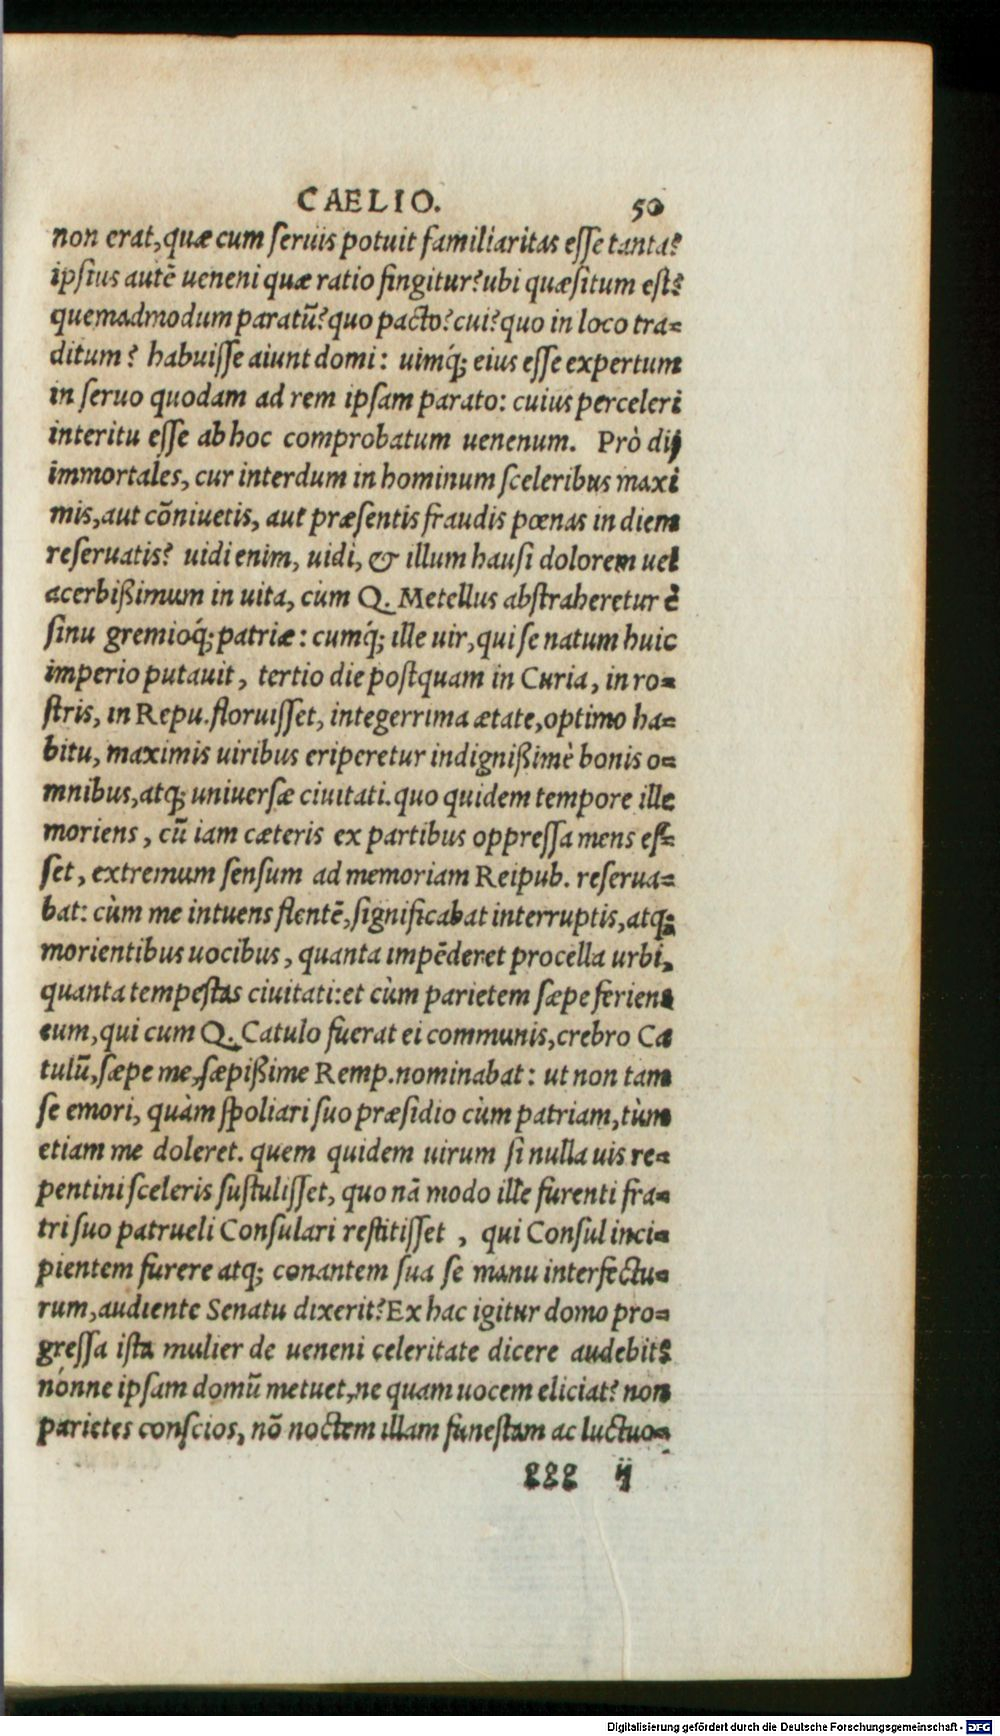 CAELIO. 50
non erat, quæ cum seruis potuit familiaritas esse tanta?
ipsius autẽ ueneni quæ ratio fingitur? ubi quæsitum est?
quemadmodum paratũ? quo pacto? cui? quo in loco tra-
ditum? habuisse aiunt domi: uimq́; eius esse expertum
in seruo quodam ad rem ipsam parato: cuius perceleri
interitu esse ab hoc comprobatum uenenum. Prò dij
immortales, cur interdum in hominum sceleribus maxi
mis, aut cõniuetis, aut præsentis fraudis pœnas in diem
reseruatis? uidi enim, uidi, & illum hausi dolorem uel
acerbißimum in uita, cùm Q. Metellus abstraheretur è
sinu gremioq́; patriæ: cumq́; ille uir, qui se natum huic
imperio putauit, tertio die postquam in Curia, in ro-
stris, in Repu. floruisset, integerrima ætate, optimo ha-
bitu, maximis uiribus eriperetur indignißimè bonis o-
mnibus, atq; uniuersæ ciuitati. quo quidem tempore ille
moriens, cũ iam cæteris ex partibus oppressa mens es-
set, extremum sensum ad memoriam Reipub. reserua-
bat: cùm me intuens flentẽ, significabat interruptis, atq;
morientibus uocibus, quanta impẽderet procella urbi,
quanta tempestas ciuitati: et cùm parietem sæpe feriens
eum, qui cum Q. Catulo fuerat ei communis, crebro Ca
tulũ, sæpe me, sæpißime Remp. nominabat: ut non tam
se emori, quàm spoliari suo præsidio cùm patriam, tùm
etiam me doleret. quem quidem uirum si nulla uis re-
pentini sceleris sustulisset, quo nã modo ille furenti fra-
tri suo patrueli Consulari restitisset, qui Consul inci-
pientem furere atq; conantem sua se manu interfectu-
rum, audiente Senatu dixerit? Ex hac igitur domo pro-
gressa ista mulier de ueneni celeritate dicere audebit?
nónne ipsam domũ metuet, ne quam uocem eliciat? non
parietes conscios, nõ noctem illam funestam ac luctuo-
ggg ij
Digitalisierung gefördert durch die Deutsche Forschungsgemeinschaft - DFG